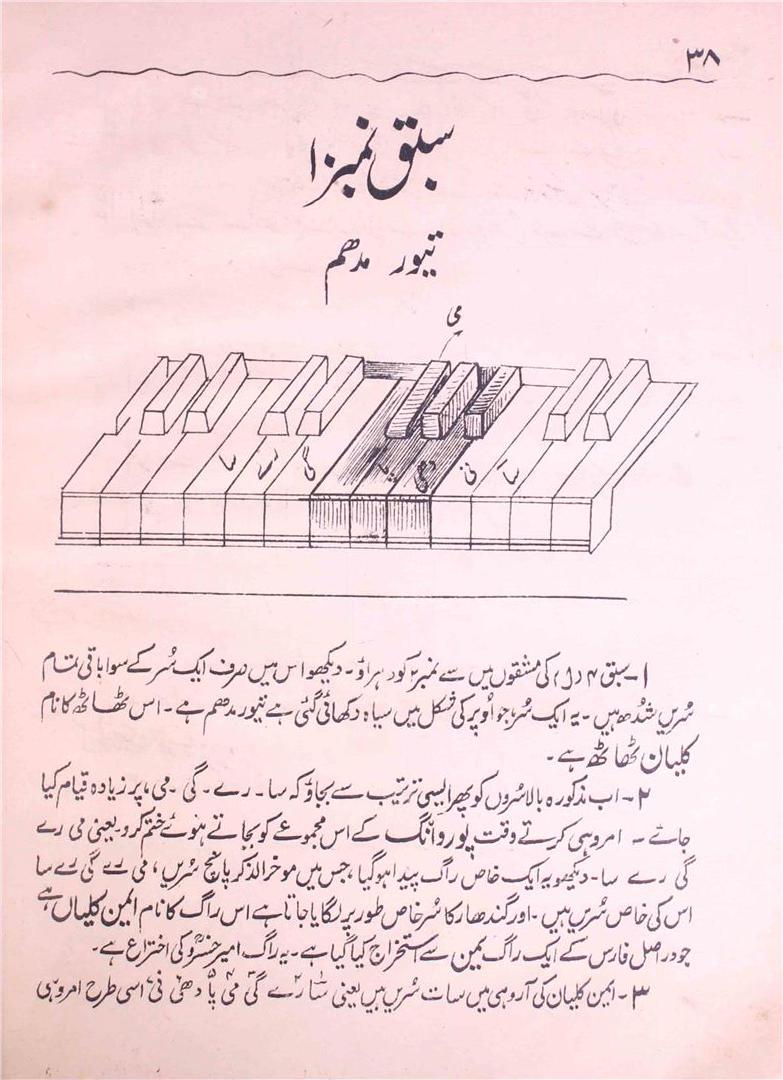 ۳۸
سبق نمبر ۱۰
تیور مدھم
می
سا رے گی پا دھی نی سا
۱- سبق ۴ کی مشقوں میں سے نمبر ۲ کو دہراؤ۔ دیکھو اس میں صرف ایک سُر کے سوا باقی تمام
سُریں شُدھ ہیں۔ یہ ایک سُر، جو اُوپر کی شکل میں سیاہ دکھائی گئی ہے تیور مدھم ہے۔ اس ٹھاٹھ کا نام
کلیان ٹھاٹھ ہے۔
۲- اب مذکورہ بالا سُروں کو پھر ایسی ترتیب سے بجاؤ کہ سا۔ رے۔ گی۔ می، پر زیادہ قیام کیا
جائے۔ امروہی کرتے وقت پوروانگ کے اس مجموعے کو بجاتے ہوئے ختم کرو۔ یعنی می رے
گی رے سا۔ دیکھو یہ ایک خاص راگ پیدا ہوگیا، جس میں موخرالذکر پانچ سُریں، می رے گی رے سا
اس کی خاص سُریں ہیں۔ اور گندھار کا سُر خاص طور پر لگایا جاتا ہے اس راگ کا نام ایمن کلیان ہے
جو دراصل فارس کے ایک راگ یمن سے استخراج کیا گیا ہے۔ یہ راگ امیر خسروؒ کی اختراع ہے۔
۳- ایمن کلیان کی آروہی میں سات سُریں ہیں یعنی سا رے گی می پا دھی نی اسی طرح امروہی